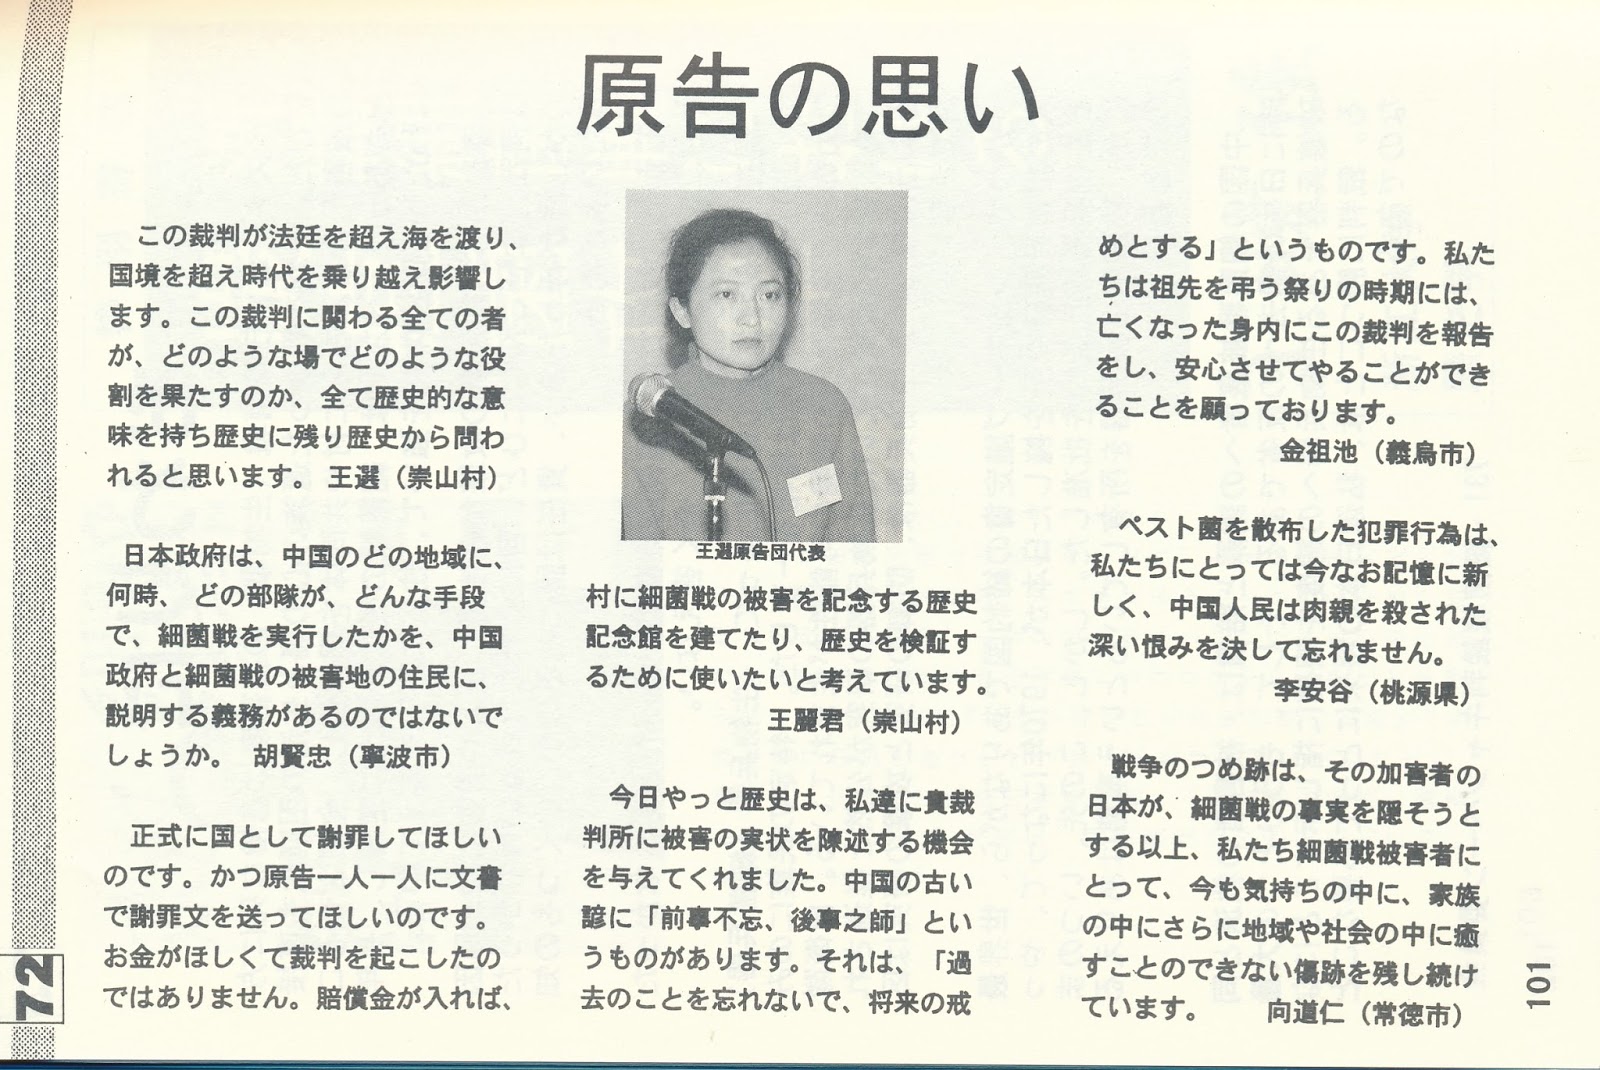 原告の思い
この裁判が法廷を超え海を渡り、
国境を超え時代を乗り越え影響し
ます。この裁判に関わる全ての者
が、どのような場でどのような役
割を果たすのか、全て歴史的な意
味を持ち歴史に残り歴史から問わ
れると思います。 王選（崇山村）
日本政府は、中国のどの地域に、
何時、どの部隊が、どんな手段
で、細菌戦を実行したかを、中国
政府と細菌戦の被害地の住民に、
説明する義務があるのではないで
しょうか。 胡賢忠（寧波市）
正式に国として謝罪してほしい
のです。かつ原告一人一人に文書
で謝罪文を送ってほしいのです。
お金がほしくて裁判を起こしたの
ではありません。賠償金が入れば、
王選原告団代表
村に細菌戦の被害を記念する歴史
記念館を建てたり、歴史を検証す
るために使いたいと考えています。
王麗君（崇山村）
今日やっと歴史は、私達に貴裁
判所に被害の実状を陳述する機会
を与えてくれました。中国の古い
諺に「前事不忘、後事之師」とい
うものがあります。それは、「過
去のことを忘れないで、将来の戒
めとする」というものです。私た
ちは祖先を弔う祭りの時期には、
亡くなった身内にこの裁判を報告
をし、安心させてやることができ
ることを願っております。
金祖池（義烏市）
ペスト菌を散布した犯罪行為は、
私たちにとっては今なお記憶に新
しく、中国人民は肉親を殺された
深い恨みを決して忘れません。
李安谷（桃源県）
戦争のつめ跡は、その加害者の
日本が、細菌戦の事実を隠そうと
する以上、私たち細菌戦被害者に
とって、今も気持ちの中に、家族
の中にさらに地域や社会の中に癒
すことのできない傷跡を残し続け
ています。 向道仁（常徳市）
72
101